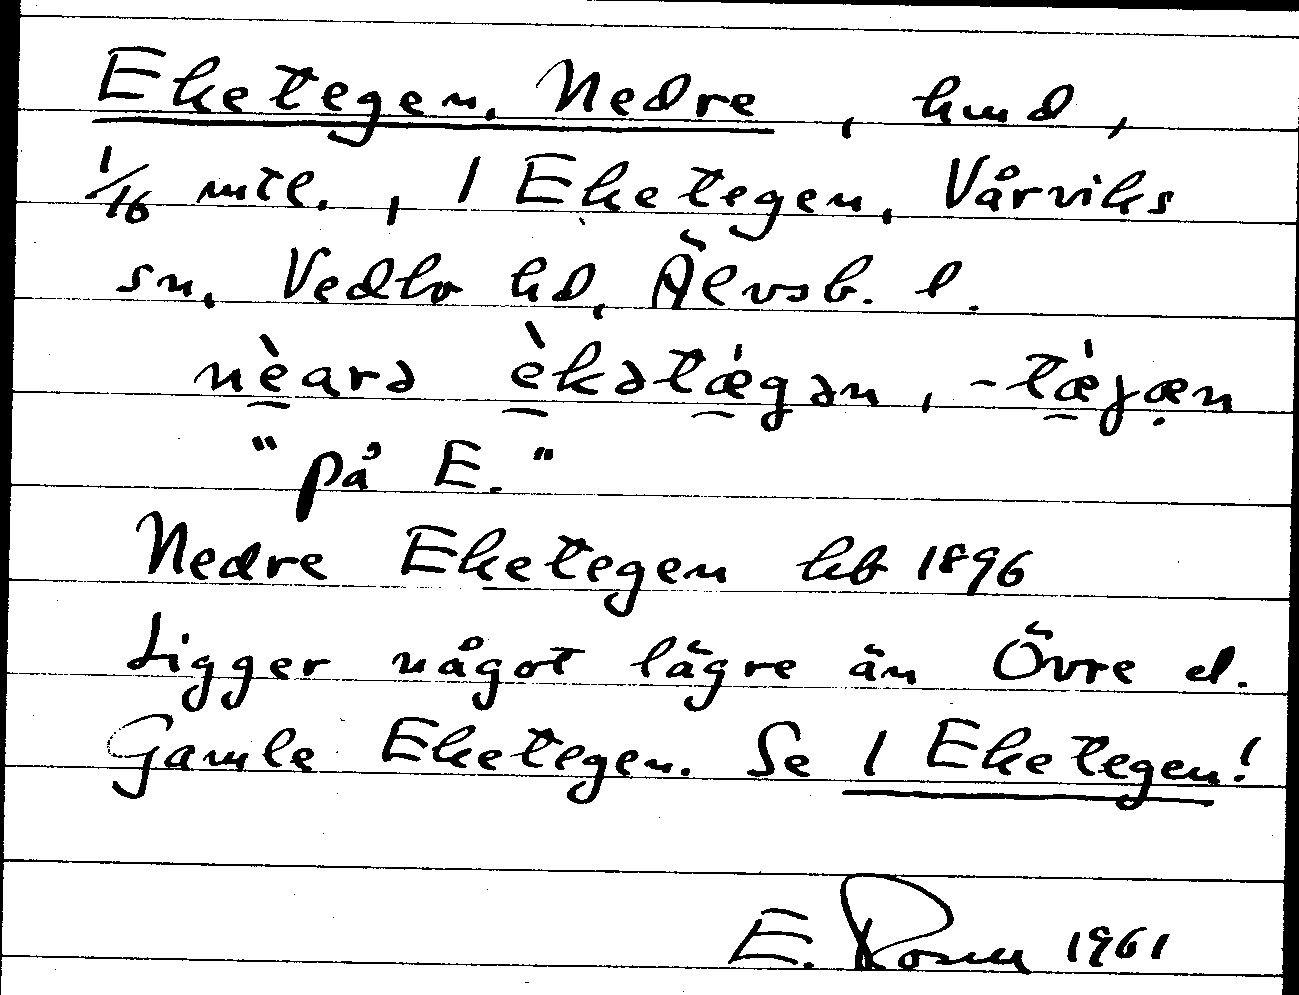 Eketegen, Nedre, hmd,
1/16 mtl., 1 Eketegen, Vårviks
sn, Vedbo hd, Älvsb. l.
nè̠arə è̠kətǽ̠gən, -tǽ̠jæ̣n
"på E."
Nedre Eketegen kb 1896
Ligger något lägre än Övre el.
Gamle Eketegen. Se 1 Eketegen!
E. Rosm 1961